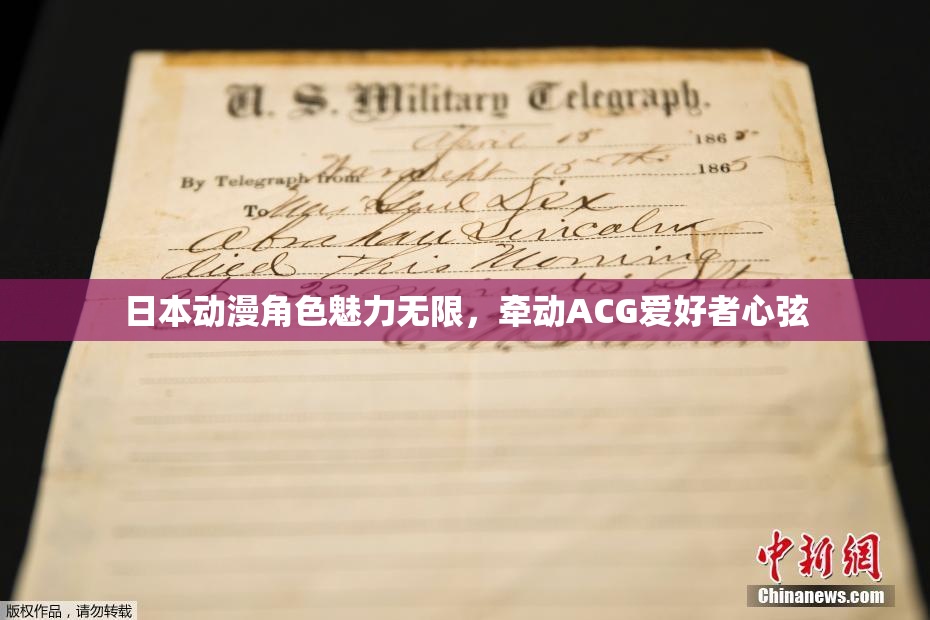 U. S. Military Telegraph.
April 15 1865
By Telegraph from War Dept 15th 1865
To Maj Genl Dix
Abraham Lincoln
died This Morning
at 22 minutes after
日本动漫角色魅力无限，牵动ACG爱好者心弦
中新网
Chinanews.com
版权作品，请勿转载